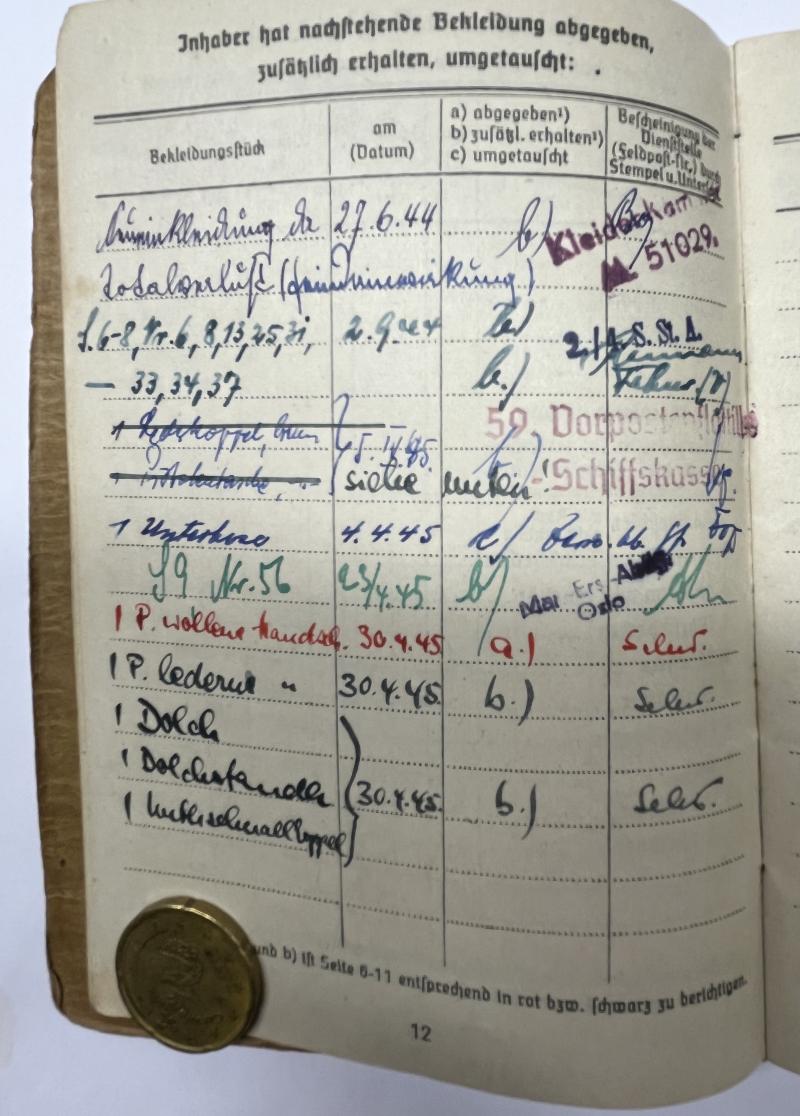 Inhaber hat nachstehende Bekleidung abgegeben,
zusätzlich erhalten, umgetauscht:
Bekleidungsstück
am
(Datum)
a) abgegeben¹)
b) zusätzl. erhalten¹)
c) umgetauscht
Bescheinigung der
Dienststelle
(Feldpost-Nr.) durch
Stempel u. Unterschr.
Neueinkleidung da 27.6.44 b) Kleiderkam
M 51029.
Totalverlust (Feindeinwirkung)
S. 6-8, Nr. 6, 8, 13, 25, 31, 2.9.44 b) 2./ S. St. A.
— 33, 34, 37 b.)
1 Lederkoppel, braun 59. Vorpostenflottille
siehe unten! -Schiffskasse
1 Unterhose 4.4.45 c)
S 9 Nr. 56 23/4.45 b) Mar Ers-Abtlg
Oslo
1 P. wollene Handsch. 30.4.45 a.) Schr.
1 P. lederne " 30.4.45. b.) Schr.
1 Dolch
1 Dolchständer 30.4.45. b.) Schr.
1 Unterschnallkoppel
und b) ist Seite 6-11 entsprechend in rot bzw. schwarz zu berichtigen.
12